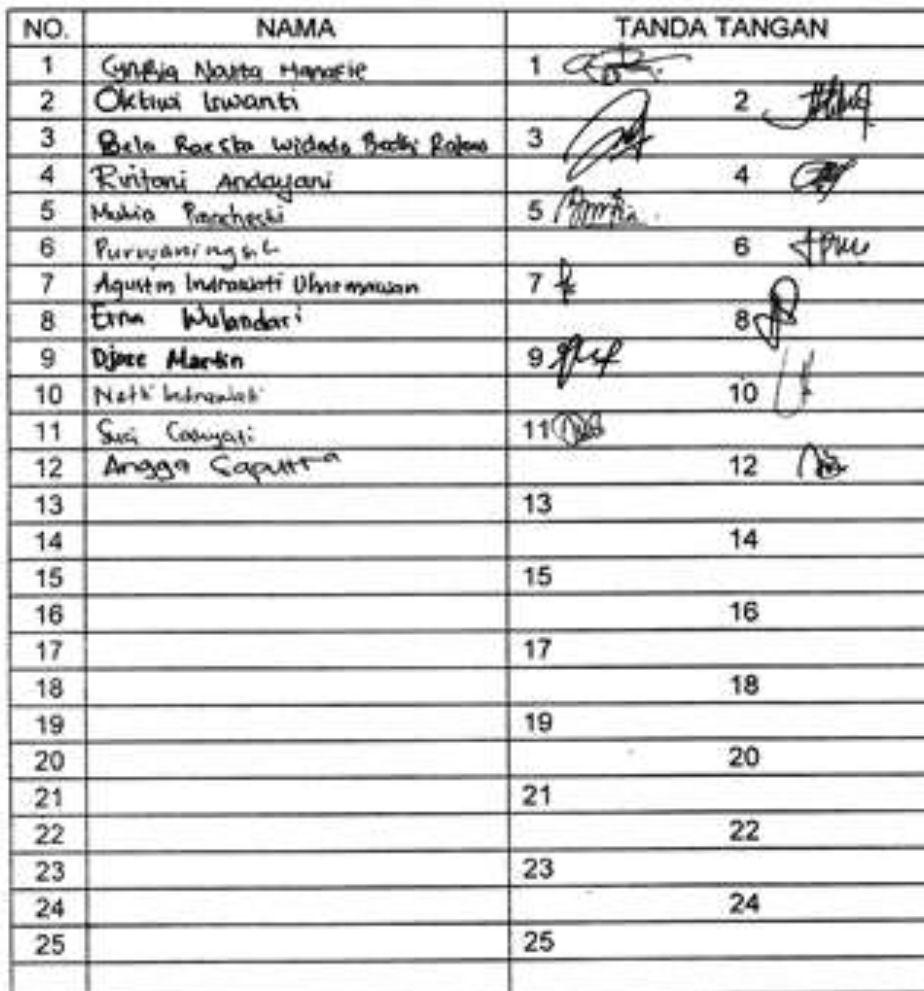 NO. NAMA TANDA TANGAN
1 Cynthia Novita Hanafie 1
2 Oktiwi Iswanti 2
3 Bela Widodo 3
4 Rvitani Andayani 4
5 5
6 Purwaningsih 6
7 Agustin Indrawati 7
8 Erna Wulandari 8
9 Djoce Martin 9
10 Netti Indrawati 10
11 Suci 11
12 Angga Saputra 12
13 13
14 14
15 15
16 16
17 17
18 18
19 19
20 20
21 21
22 22
23 23
24 24
25 25